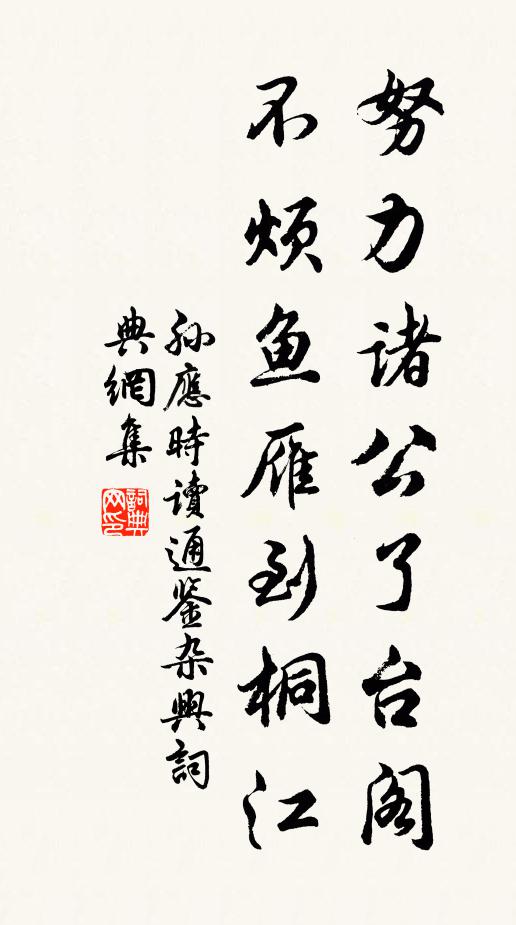 努力诸公了台阁
不烦鱼雁到桐江
孙應時读通鉴杂興詞
典網集
詞典网印